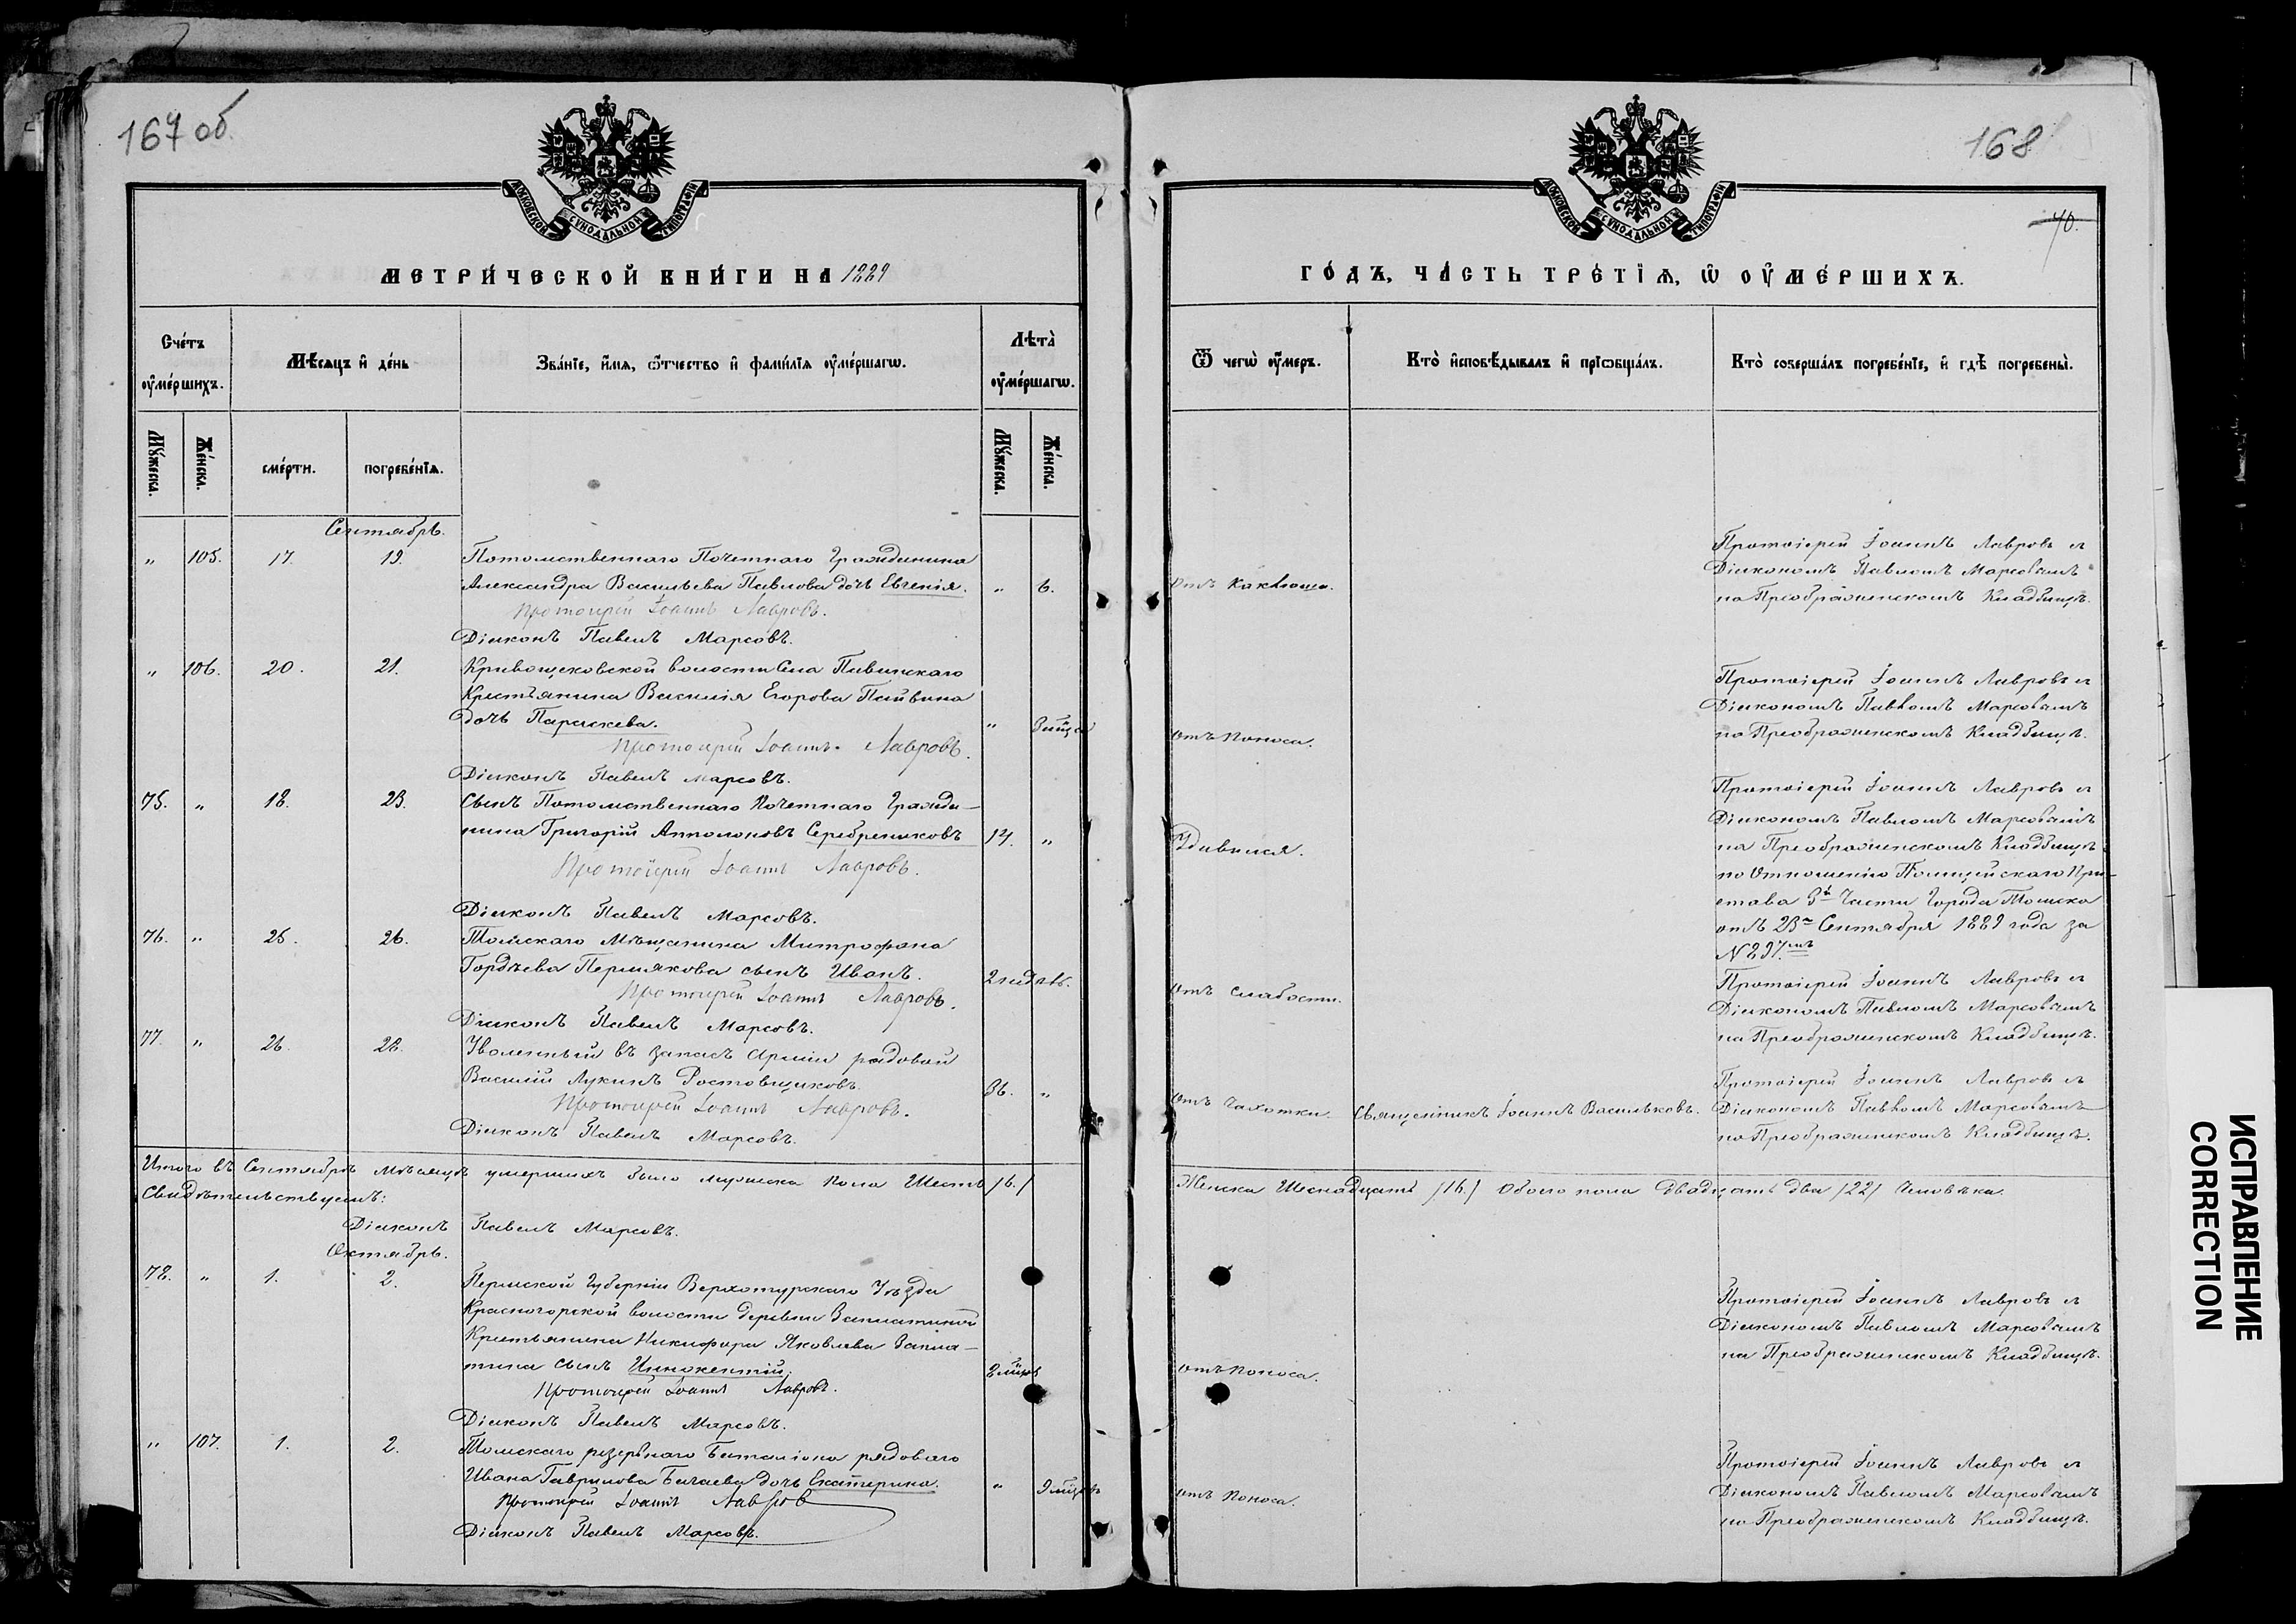 167 об.
168
40.
МОСКОВСКОЙ СѴНОДАЛЬНОЙ ТИПОГРАФІИ
МОСКОВСКОЙ СѴНОДАЛЬНОЙ ТИПОГРАФІИ
МЕТРИ́ЧЕСКОЙ КНИ́ГИ НА 1889
ГО́ДЪ, ЧА́СТЬ ТРЕ́ТІѦ, Ѡ ОУ҆МЕ́РШИХЪ.
Сче́тъ оу҆ме́ршихъ.
Мѣ́сяцъ и҆ де́нь
Зва́нїе, и҆́мѧ, ѻ҆́тчество и҆ фами́лїѧ оу҆ме́ршагѡ.
Лѣ̀та оу҆ме́ршагѡ.
Ѿ чегѡ̀ оу҆́меръ.
Кто̀ и҆сповѣ́дывалъ и҆ прїѡбща́лъ.
Кто̀ соверша́лъ погребе́нїе, и҆ гдѣ̀ погребены̀.
Мꙋ́жеска.
Же́нска.
сме́рти.
погребе́нїѧ.
Мꙋ́жеска.
Же́нска.
Сентябрь.
„ 105. 17. 19. Потомственнаго Почетнаго Гражданина
Александра Васильева Павлова дочь Евгенія. „ 6. Отъ Коклюша.
Протоіерей Іоаннъ Лавровъ.
Діаконъ Павелъ Марсовъ.
Протоіерей Іоаннъ Лавровъ съ
Діакономъ Павломъ Марсовымъ
на Преображенскомъ Кладбищѣ.
„ 106. 20. 21. Кривощековской волости Села
Крестьянина Василія Егорова Пайвина
дочь Параскева. „ 3 мѣс. Отъ Поноса.
Протоіерей Іоаннъ Лавровъ.
Діаконъ Павелъ Марсовъ.
Протоіерей Іоаннъ Лавровъ съ
Діакономъ Павломъ Марсовымъ
на Преображенскомъ Кладбищѣ.
75. „ 18. 23. Сынъ Потомственнаго Почетнаго Гражда-
нина Григорій Апполоновъ Серебренниковъ 14. „ Удавился.
Протоіерей Іоаннъ Лавровъ.
Діаконъ Павелъ Марсовъ.
Протоіерей Іоаннъ Лавровъ съ
Діакономъ Павломъ Марсовымъ
на Преображенскомъ Кладбищѣ
по Отношенію Полицейскаго При-
става 3й Части Города Томска
отъ 23го Сентября 1889 года за
№
76. „ 25. 26. Томскаго Мѣщанина Митрофана
Гордѣева Пермякова сынъ Иванъ. 2 недѣль. Отъ Слабости.
Протоіерей Іоаннъ Лавровъ.
Діаконъ Павелъ Марсовъ.
Протоіерей Іоаннъ Лавровъ съ
Діакономъ Павломъ Марсовымъ
на Преображенскомъ Кладбищѣ.
77. „ 26. 28. Уволенный въ запасъ Арміи рядовой
Василій Лукинъ Ростовщиковъ. 36. „ Отъ Чахотки. Священникъ Іоаннъ Васильковъ.
Протоіерей Іоаннъ Лавровъ.
Діаконъ Павелъ Марсовъ.
Протоіерей Іоаннъ Лавровъ съ
Діакономъ Павломъ Марсовымъ
на Преображенскомъ Кладбищѣ.
Итого въ Сентябрѣ мѣсяцѣ умершихъ было мужеска пола Шесть /6./ Женска Шеснадцать /16./ Обоего пола Двадцать два /22/ Человѣка.
Свидѣтельствуемъ:
Діаконъ Павелъ Марсовъ.
Октябрь.
78. „ 1. 2. Пермской Губерніи Верхотурскаго Уѣзда
Красногорской волости Деревни Заплатиной
Крестьянина Никифора Яковлева Запла-
тина сынъ Иннокентій. 2 мѣс. Отъ Поноса.
Протоіерей Іоаннъ Лавровъ.
Діаконъ Павелъ Марсовъ.
Протоіерей Іоаннъ Лавровъ съ
Діакономъ Павломъ Марсовымъ
на Преображенскомъ Кладбищѣ.
„ 107. 1. 2. Томскаго резервнаго Баталіона рядоваго
Ивана Гаврилова Бачаева дочь Екатерина. „ 9 мѣс. Отъ Поноса.
Протоіерей Іоаннъ Лавров
Діаконъ Павелъ Марсовъ.
Протоіерей Іоаннъ Лавровъ съ
Діакономъ Павломъ Марсовымъ
на Преображенскомъ Кладбищѣ.
ИСПРАВЛЕНИЕ
CORRECTION